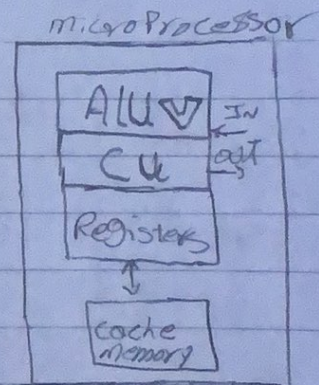 microProcessor
ALU
IN
CU
out
Registers
Cache
memory